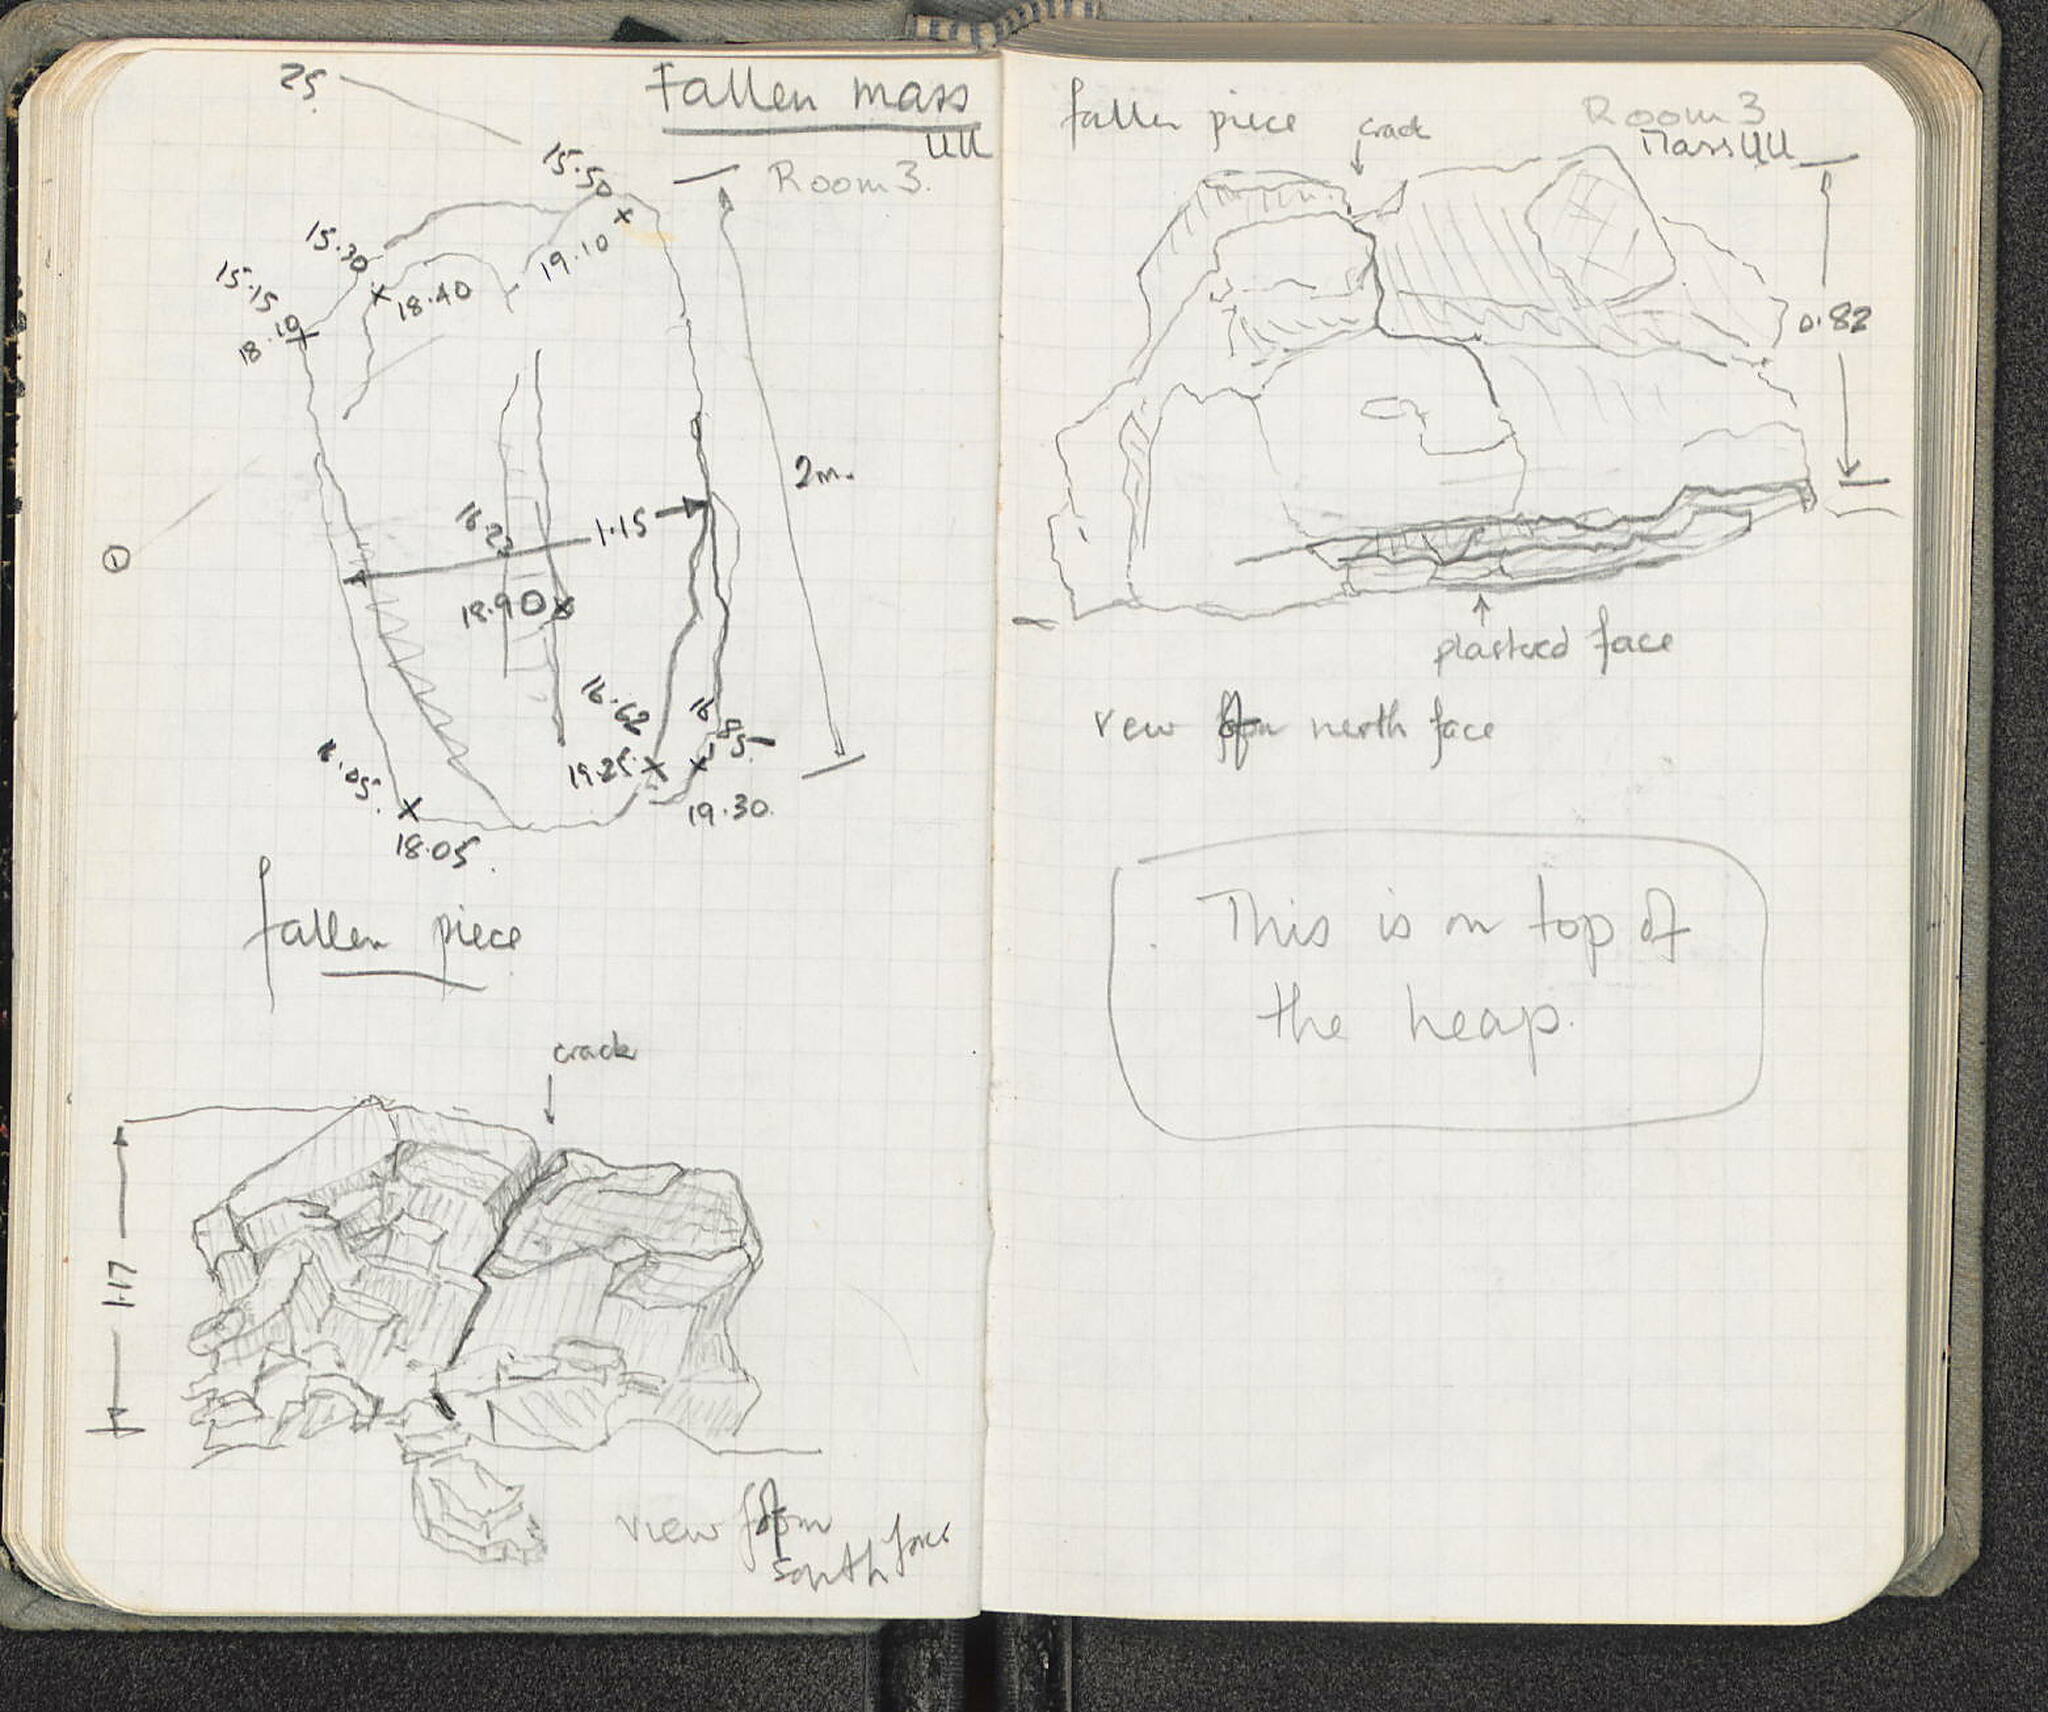 25.
Fallen mass
UU
Room 3.
15.50
19.10
15.30
18.40
15.15
18.10
2m.
1.15
16.23
18.90
16.62
19.25
16.85
19.30.
16.05.
18.05.
fallen piece
crack
1.17
south face
fallen piece
crack
Room 3
Mass UU
0.82
plastered face
north face
This is on top of
the heap.